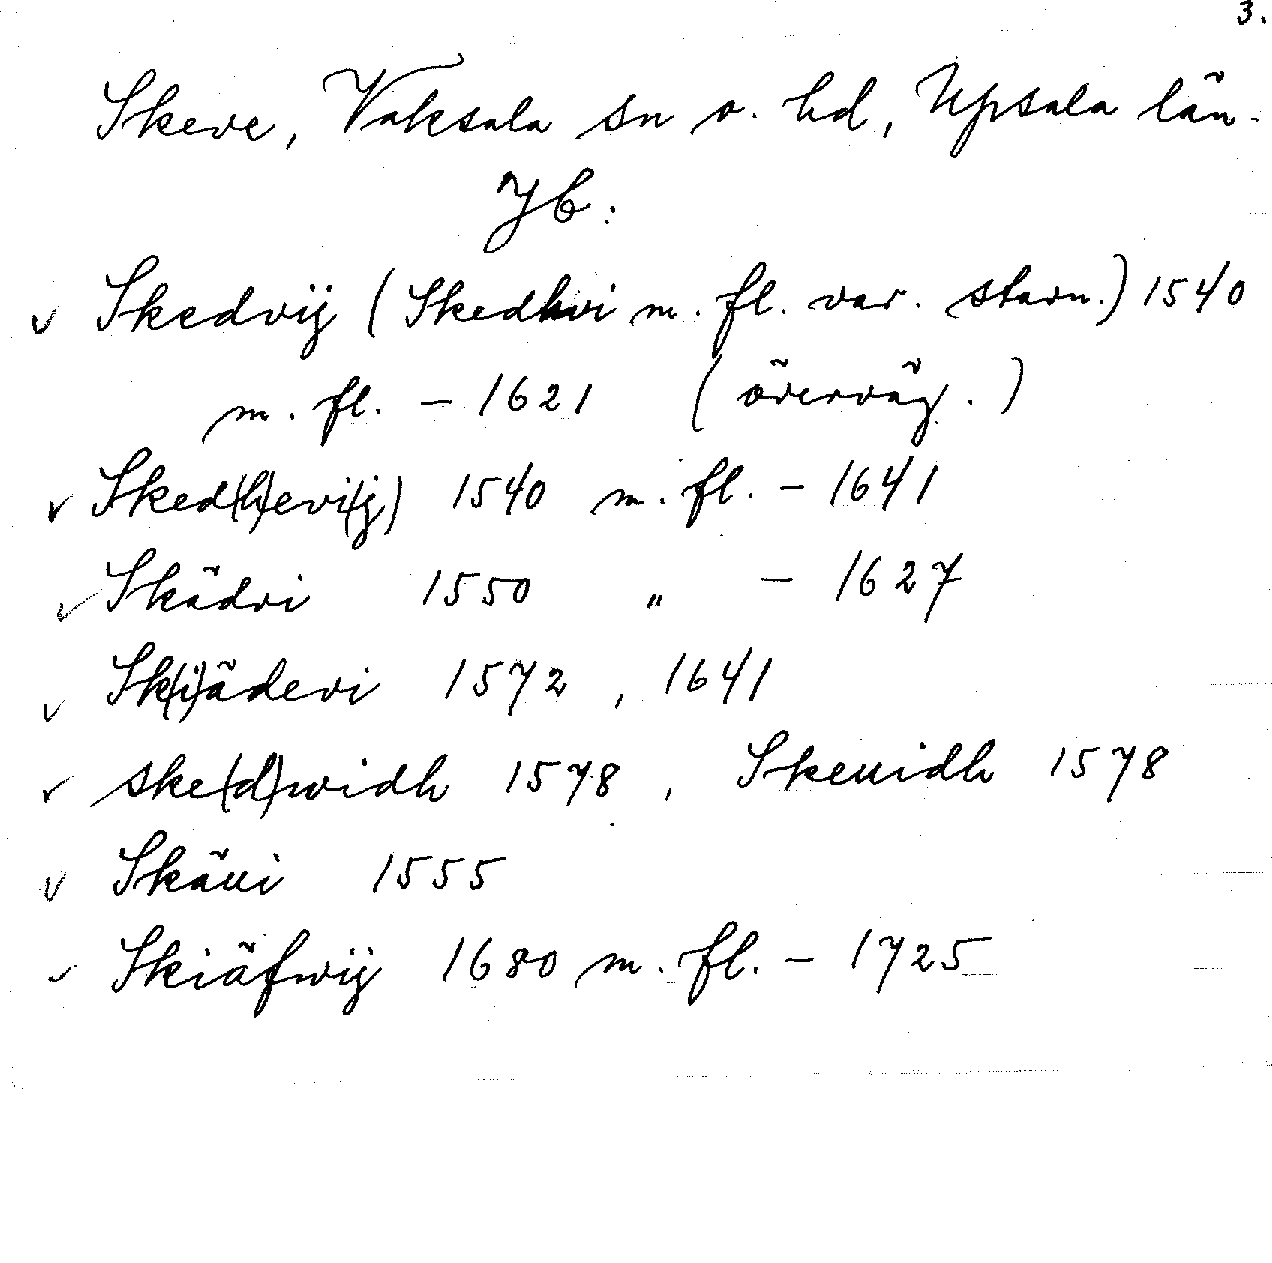 3.
Skeve, Vaksala sn o. hd, Upsala län.
Jb:
v Skedvij (Skedhvi m. fl. var. stavn.) 1540
m. fl. – 1621 (överväg.)
v Sked(h)evi(j) 1540 m. fl. – 1641
v Skädvi 1550 „ – 1627
v Sk(i)ädevi 1572, 1641
v ske(d)widh 1578, Skeuidh 1578
v Skäui 1555
v Skiäfwij 1680 m. fl. – 1725